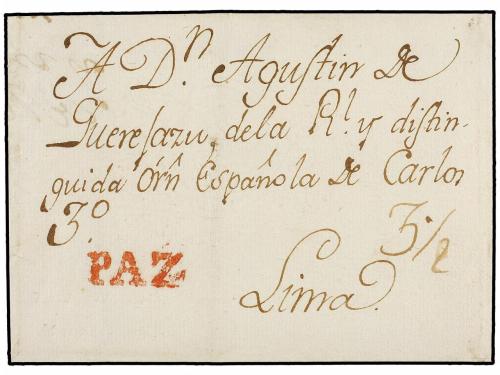 A Dⁿ Agustin de
Queresazu, dela Rl. y distin-
guida Orñ Española de Carlos
3º
3½
PAZ
Lima.